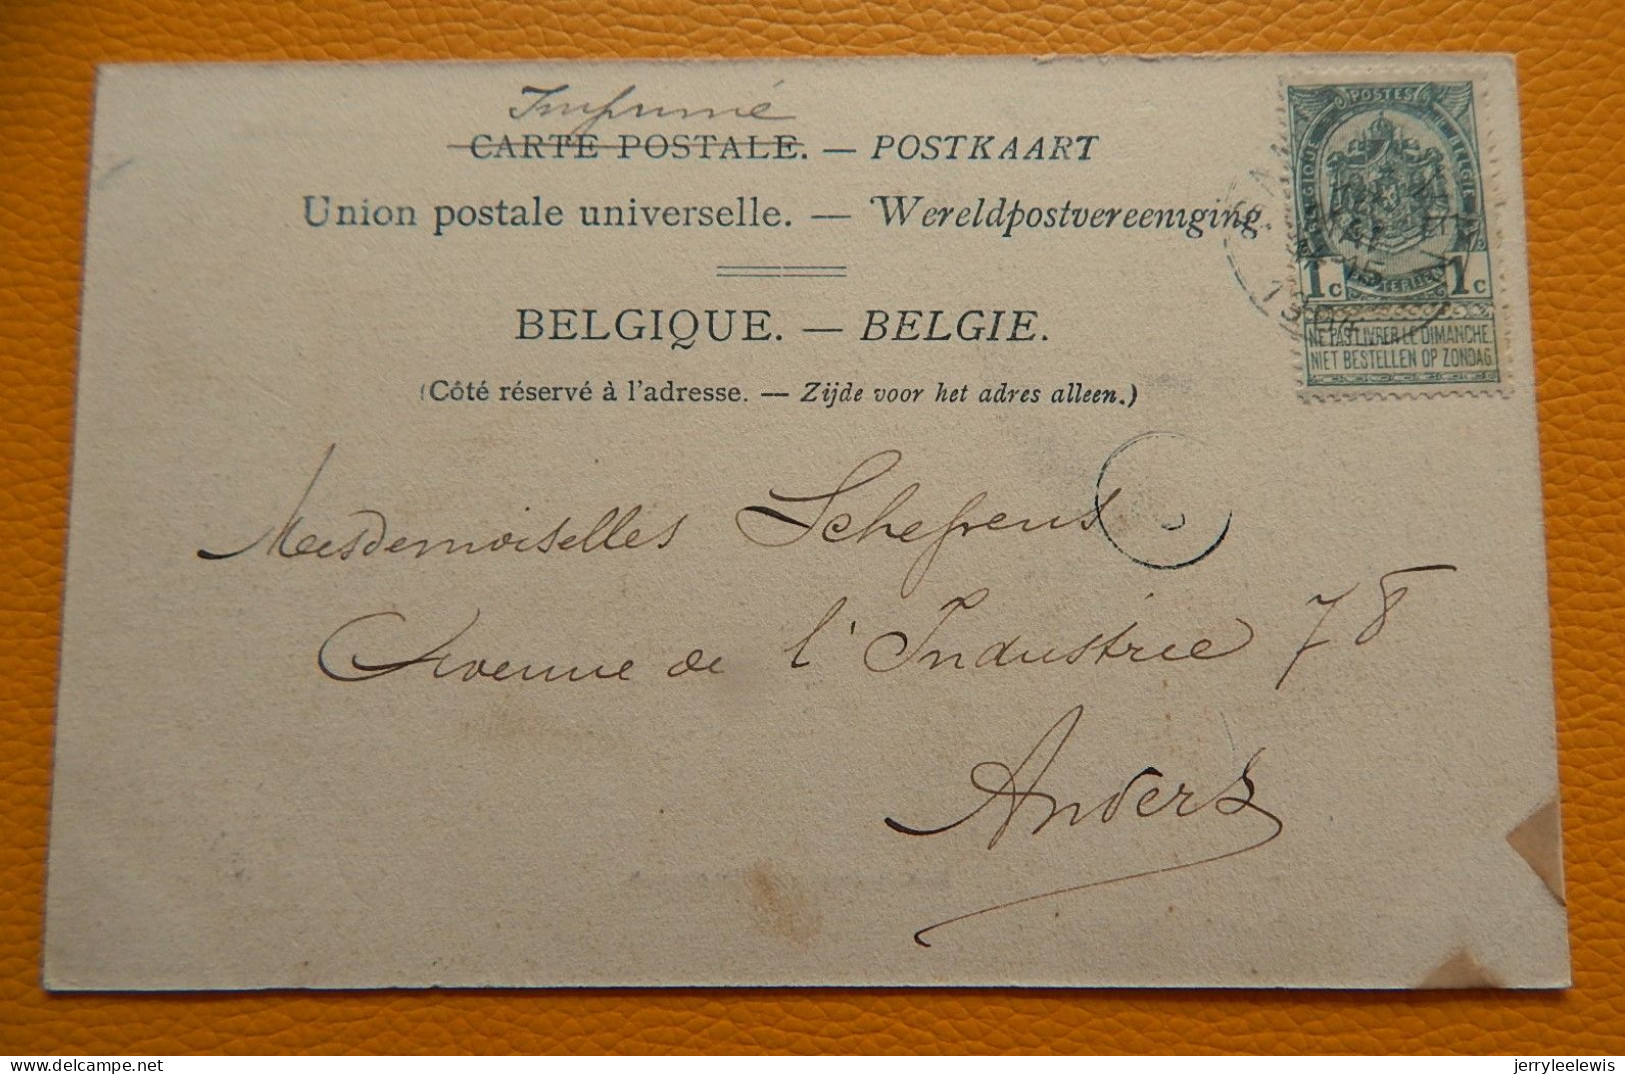 Imprimé
CARTE POSTALE. — POSTKAART
Union postale universelle. — Wereldpostvereeniging.
BELGIQUE. — BELGIE.
(Côté réservé à l'adresse. — Zijde voor het adres alleen.)
POSTES
BELGIQUE BELGIË
POSTERIJEN
1c 1c
NE PAS LIVRER LE DIMANCHE
NIET BESTELLEN OP ZONDAG
1904
Mesdemoiselles
Avenue de l'Industrie 78
Anvers
jerryleelewis
delcampe.net